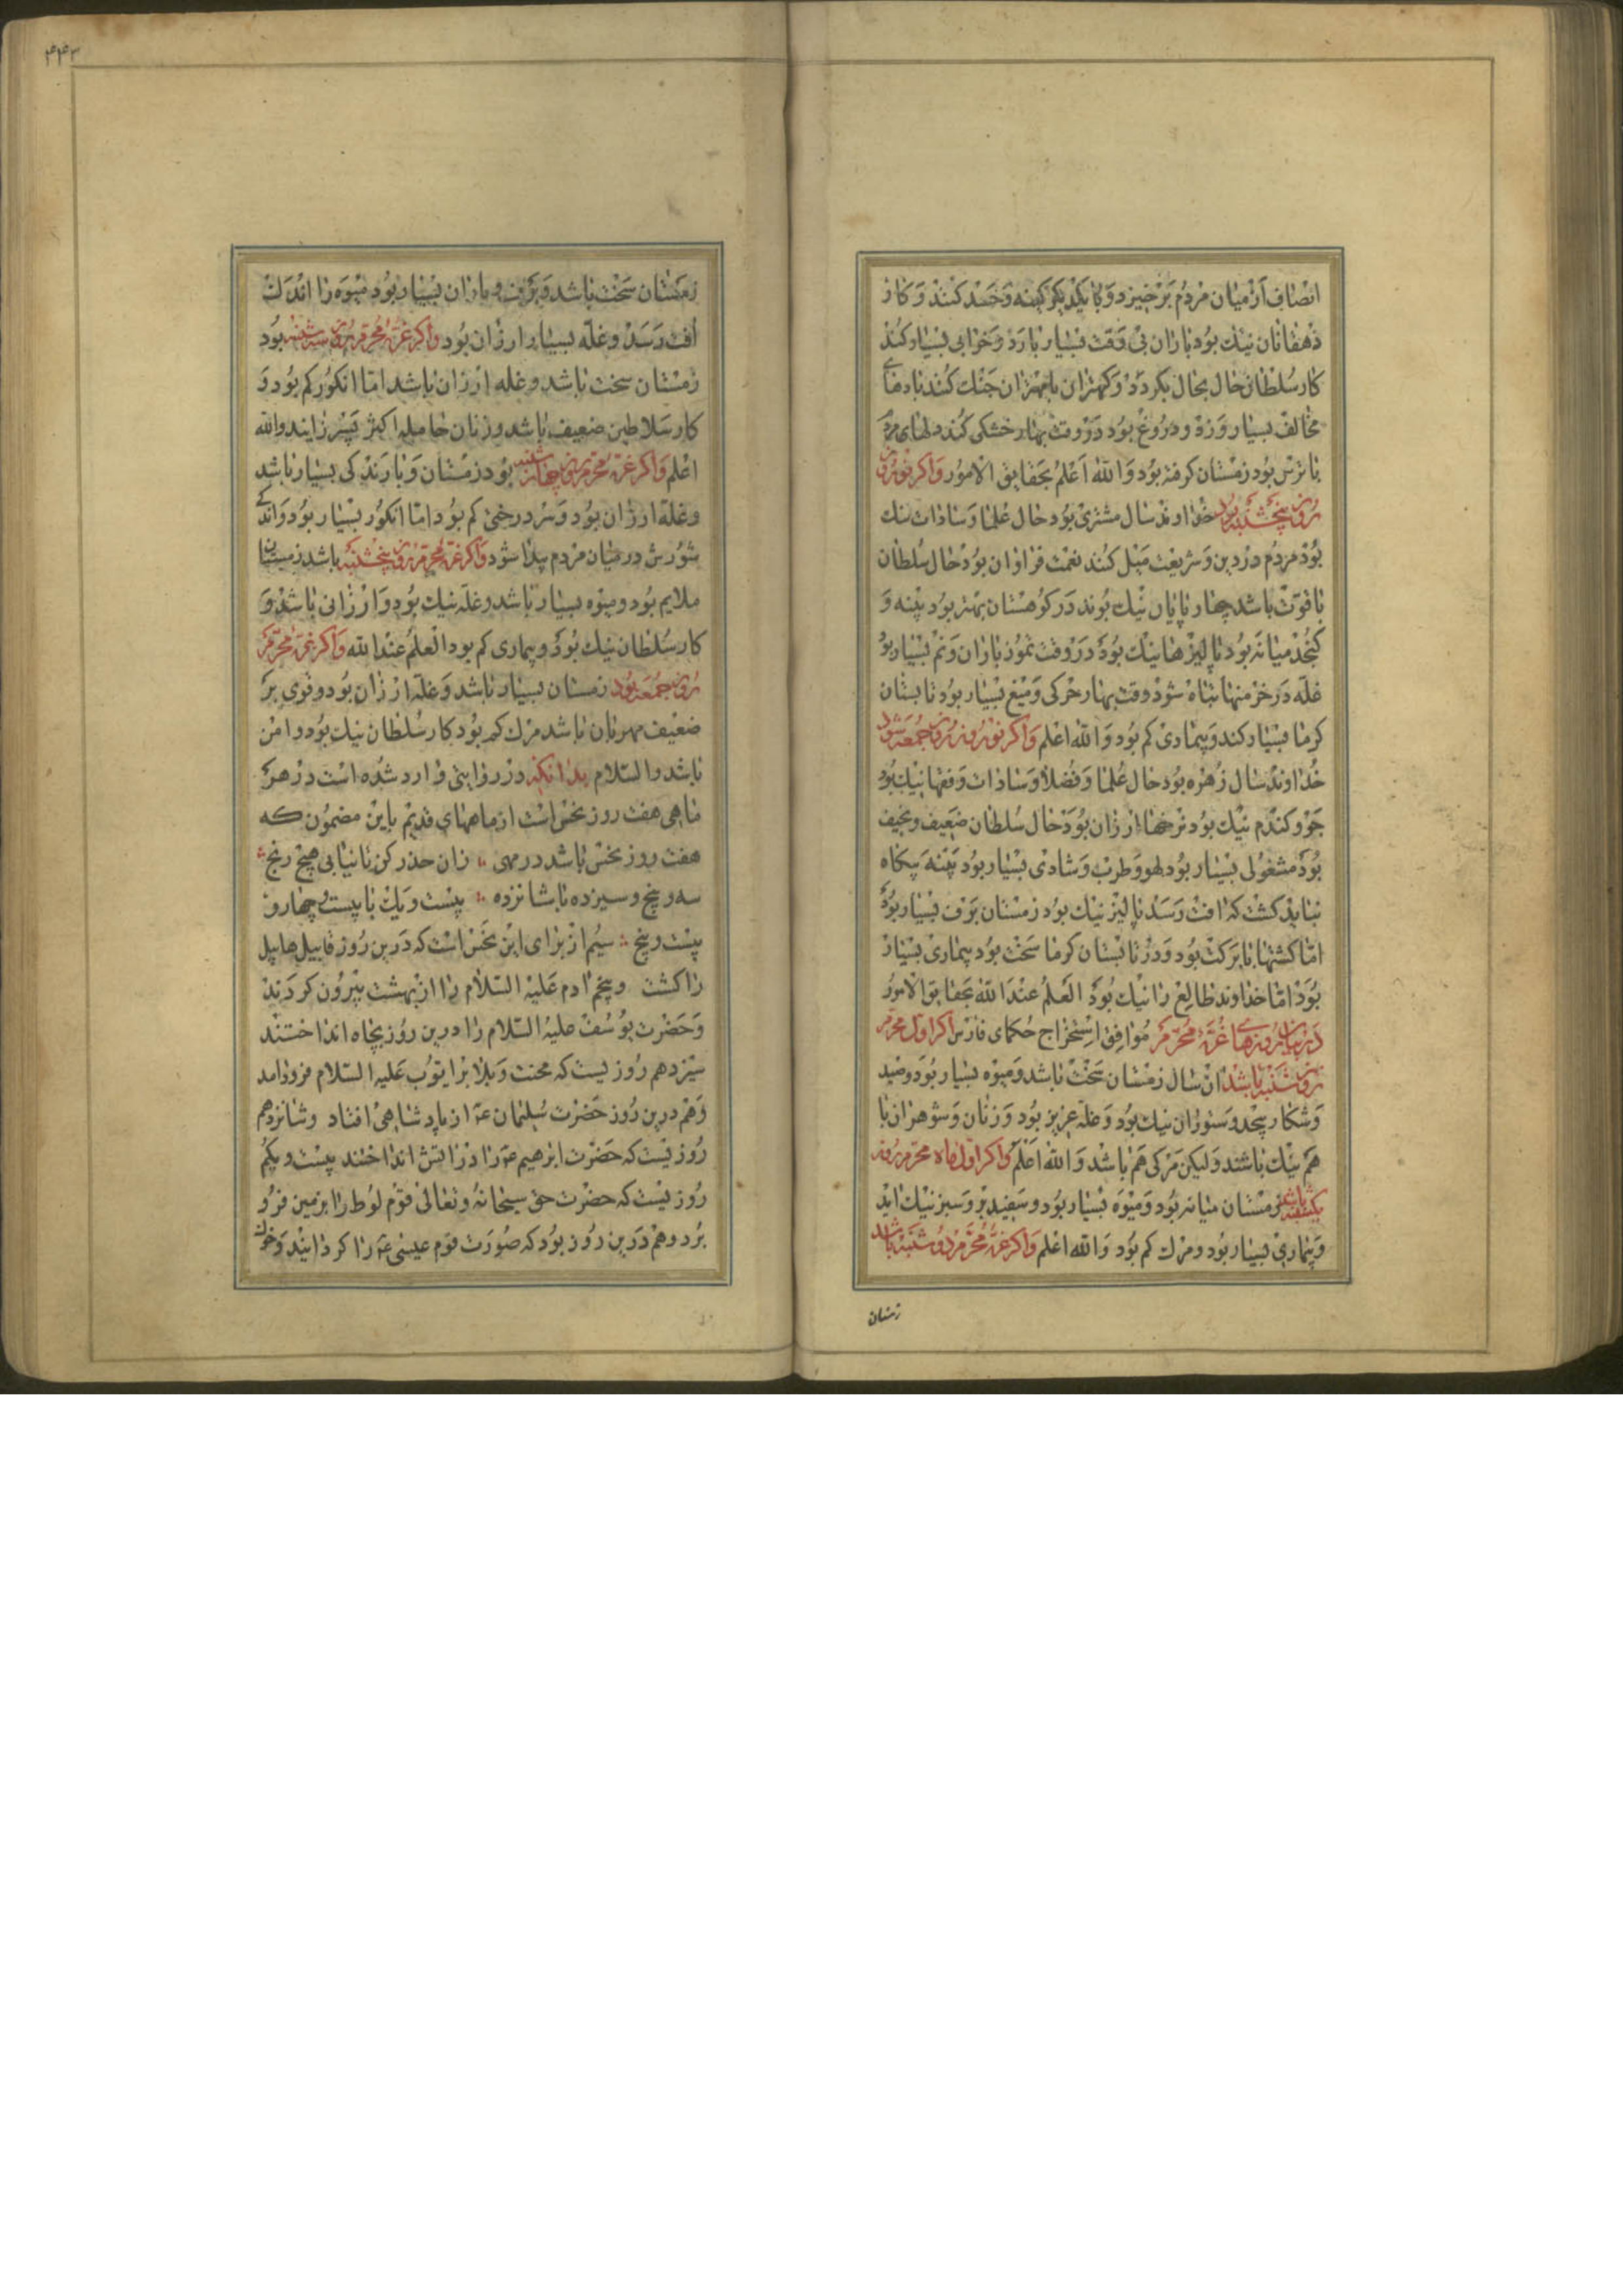 انصاف از میان مردم برخیزد و با یکدیگر کینه و حسد کنند و کار
دهقانان نیک بود باران بی وقت بسیار بارد و خرابی بسیار کند
کار سلطان حال بحال بگردد و کهتران با مهتران جنک کنند بادهای
مخالف بسیار وزد و دروغ بود در وقت بهار خشکی کند دلهای مردم
با ترس بود زمستان کرفته بود والله اعلم بحقایق الامور واکر نوروز
روز پنجشنبه بود خداوند سال مشتری بود حال علما و سادات نیک
بود مردم در دین و شریعت میل کنند نعمت فراوان بود حال سلطان
با قوت باشد چهارپایان نیک بوند در کوهستان بهتر بود پنبه و
کنجد میانه بود پالیزها نیک بود در وقت تموز باران و نم بسیار بود
غله در خرمنها تباه شود وقت بهار حرکی و میغ بسیار بود تابستان
کرما بسیار کند و بیماری کم بود والله اعلم واکر نوروز روز جمعه شود
خداوند سال زهره بود حال علما و فضلا و سادات و فقها نیک بود
جو و کندم نیک بود نرخها ارزان بود حال سلطان ضعیف و نحیف
بود مشغولی بسیار بود لهو و طرب و شادی بسیار بود پنبه پیکاه
نباید کشت که افت رسد پالیز نیک بود زمستان برف بسیار بود
اما کشتها با برکت بود و در تابستان کرما سخت بود بیماری بسیار
بود اما خداوند طالع را نیک بود العلم عندالله بحقایق الامور
در بیان روزهای غره محرم موافق استخراج حکمای فارس اکر اول محرم
روز شنبه باشد ان سال زمستان سخت باشد و میوه بسیار بود و صید
و شکار بیحد و ستوران نیک بود و غله عزیز بود و زنان و شوهران با
هم نیک باشند ولیکن مرکی هم باشد والله اعلم واکر اول ماه محرم روز
یکشنبه باشد زمستان میانه بود و میوه بسیار بود و سفید بر و سبز نیک اید
و بیماری بسیار بود و مرک کم بود والله اعلم واکر غره محرم دوشنبه باشد
زمستان
۴۴۳
زمستان سخت باشد و برف و باران بسیار بود میوه را اندک
افت رسد و غله بسیار و ارزان بود واکر غره محرم روز سه شنبه بود
زمستان سخت باشد و غله ارزان باشد اما انکور کم بود و
کار سلاطین ضعیف باشد و زنان حامله اکثر پسر زایند والله
اعلم واکر غره محرم روز چهارشنبه بود زمستان و بارندکی بسیار باشد
و غله ارزان بود و سردرختی کم بود اما انکور بسیار بود و اندکی
شورش در میان مردم پیدا شود واکر غره محرم روز پنجشنبه باشد زمستان
ملایم بود و میوه بسیار باشد و غله نیک بود و ارزانی باشد و
کار سلطان نیک بود و بیماری کم بود العلم عندالله واکر غره محرم
روز جمعه بود زمستان بسیار باشد و غله ارزان بود و قوی بر
ضعیف مهربان باشد مرک کم بود کار سلطان نیک بود و امن
باشد والسلام بدانکه در روایتی وارد شده است در هر
ماهی هفت روز نحس است از ماههای قدیم باین مضمون که
هفت روز نحس باشد در مهی ∴ زان حذر کن تا نیابی هیچ رنج ∴
سه و پنج و سیزده با شانزده ∴ بیست و یک با بیست و چهار و
بیست و پنج ∴ سیم از برای این نحس است که درین روز قابیل هابیل
را کشت و پنجم ادم علیه السلام را از بهشت بیرون کردند
و حضرت یوسف علیه السلام را درین روز بچاه انداختند
سیزدهم روزیست که محنت و بلا بر ایوب علیه السلام فرود امد
و هم درین روز حضرت سلیمان ع از پادشاهی افتاد و شانزدهم
روزیست که حضرت ابرهیم ع را در اتش انداختند بیست و یکم
روزیست که حضرت حق سبحانه و تعالی قوم لوط را بزمین فرو
برد و هم درین روز بود که صورت قوم عیسی ع را کردانید و خوک